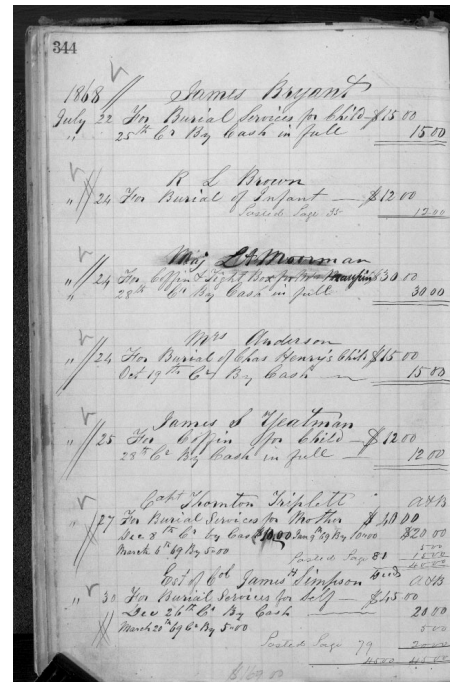 344
1868 // James Bryant
July 22 For Burial Services for Child $15.00
" 25th Cr By Cash in full 15.00
R L Brown
" 24 For Burial of Infant — $12.00
Posted Page 35 12.00
Maj Moorman
" 24 For Coffin & Tight Box for $30.00
" 28th Cr By Cash in full 30.00
Mrs Anderson
" 24 For Burial of Chas Henry's Child $15.00
Oct 19th Cr By Cash — 15.00
James S Yeatman
" 25 For Coffin for Child — $12.00
28th Cr By Cash in full — 12.00
Capt Thornton Triplett A&B
" 27 For Burial Services for Mother $40.00
Dec 8th Cr by Cash $10.00 Jany 9th 69 By 10.00 $20.00
March 5th 69 By 5.00 5.00
Posted Page 81 15.00
40.00
Est of Col James H Simpson Decd A&B
" 30 For Burial Services for Self — $45.00
Dec 26th Cr By Cash 20.00
March 20th 69 Cr By 5.00 5.00
Posted Page 79 20.00
45.00 45.00
$169.00